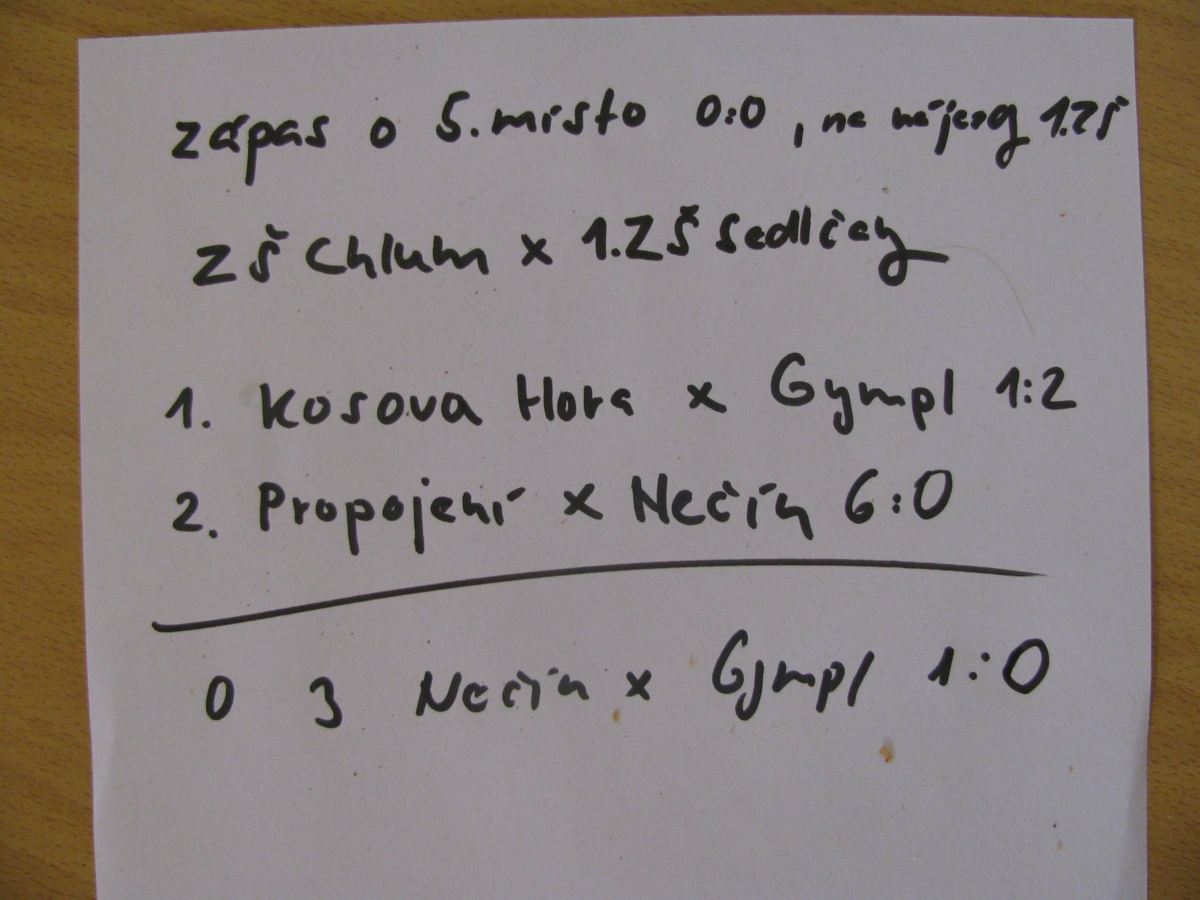 zápas o 5. místo 0:0, na nájezdy 1.ZŠ
ZŠ Chlum x 1.ZŠ Sedlčany
1. Kosova Hora x Gympl 1:2
2. Propojení x Nečín 6:0
O 3 Nečín x Gympl 1:0